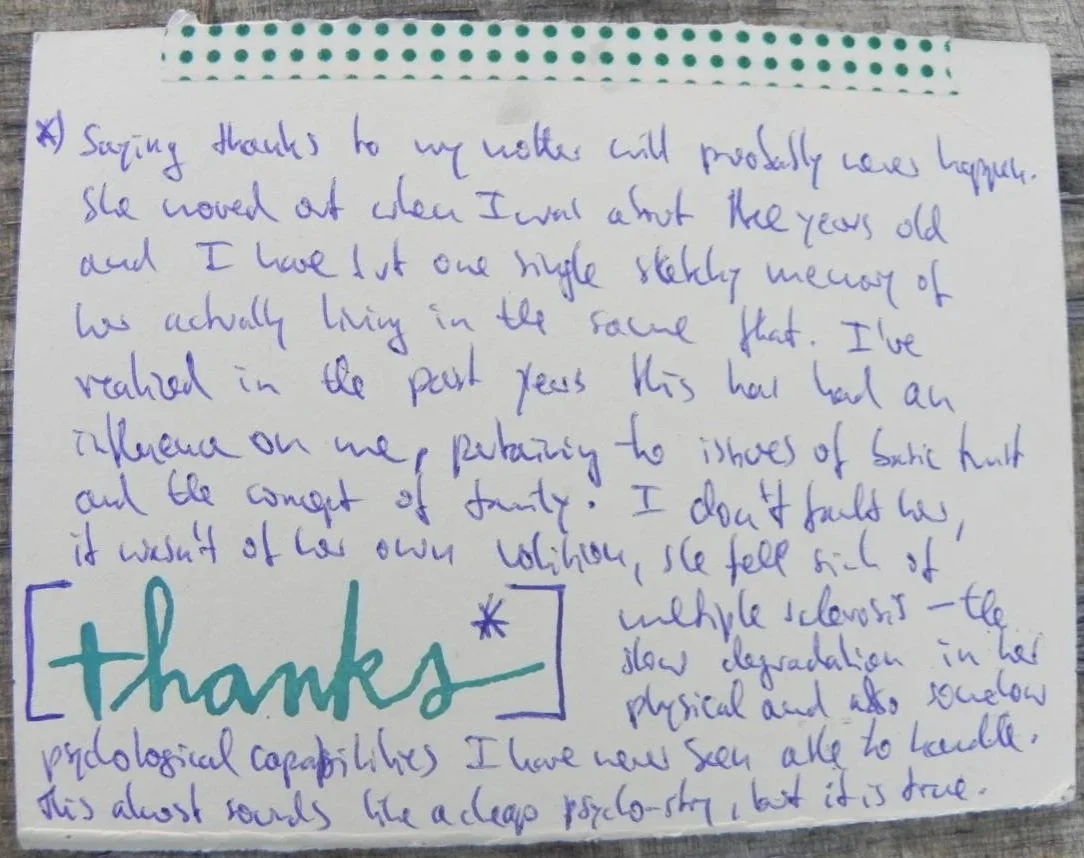 *) Saying thanks to my mother will probably never happen.
She moved out when I was about three years old
and I have but one single sketchy memory of
her actually living in the same flat. I've
realized in the past years this has had an
influence on me, pertaining to issues of basic trust
and the concept of family. I don't fault her,
it wasn't of her own volition, she fell sick of
multiple sclerosis – the
slow degradation in her
physical and also somehow
[thanks*]
psychological capabilities I have never been able to handle.
This almost sounds like a cheap psycho-story, but it is true.